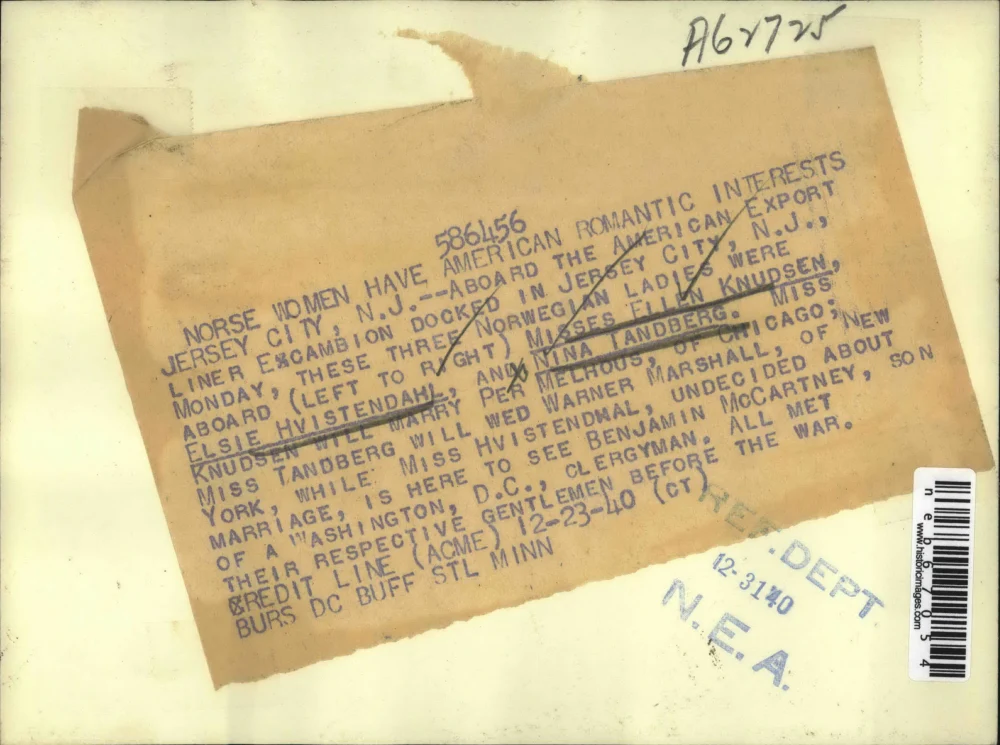 A62725
586456
NORSE WOMEN HAVE AMERICAN ROMANTIC INTERESTS
JERSEY CITY, N.J.--ABOARD THE AMERICAN EXPORT
LINER EXCAMBION DOCKED IN JERSEY CITY, N.J.,
MONDAY, THESE THREE NORWEGIAN LADIES WERE
ABOARD (LEFT TO RIGHT) MISSES ELLEN KNUDSEN,
ELSIE HVISTENDAHL, AND NINA TANDBERG. MISS
KNUDSEN WILL MARRY PER MELHOUS, OF CHICAGO;
MISS TANDBERG WILL WED WARNER MARSHALL, OF NEW
YORK, WHILE MISS HVISTENDMAL, UNDECIDED ABOUT
MARRIAGE, IS HERE TO SEE BENJAMIN McCARTNEY, SON
OF A WASHINGTON, D.C., CLERGYMAN. ALL MET
THEIR RESPECTIVE GENTLEMEN BEFORE THE WAR.
CREDIT LINE (ACME) 12-23-40 (CT)
BURS DC BUFF STL MINN
REF.DEPT
12-31 40
N.E.A.
neb67054
www.historicimages.com